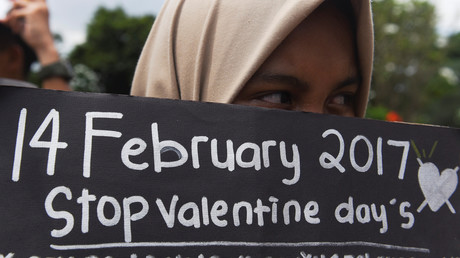 14 February 2017
Stop Valentine day's